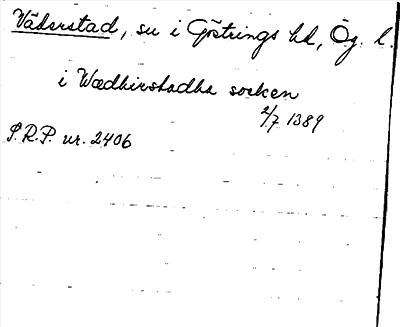 Väderstad, sn i Göstrings hd, Ög. l.
i Wædhirstadha socken
2/7 1389
S.R.P. nr. 2406